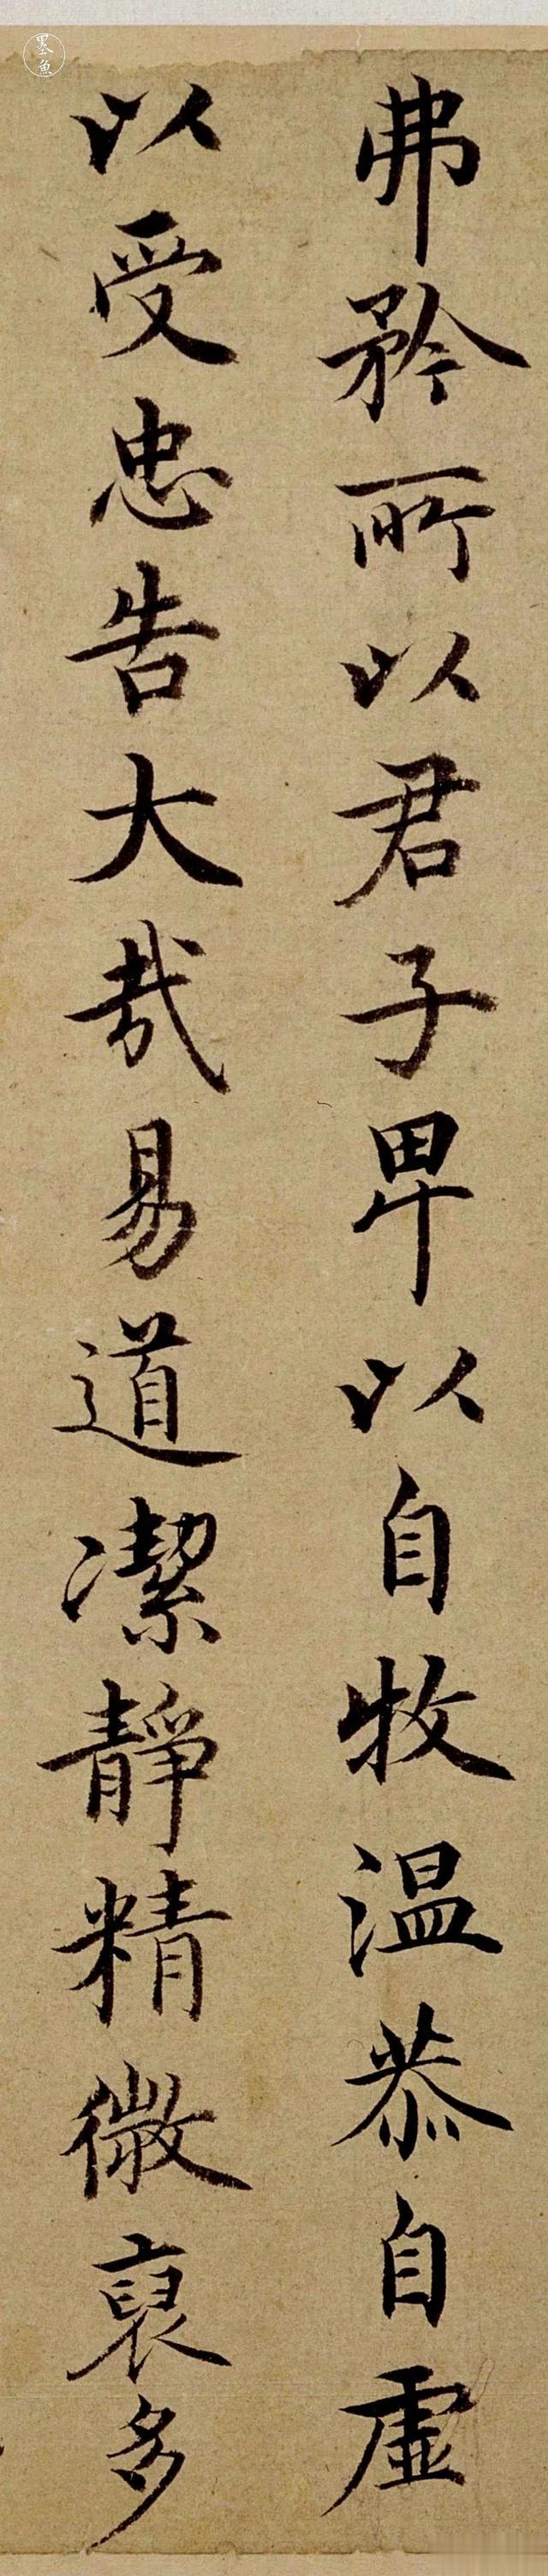 弗矜所以君子卑以自牧温恭自虚
以受忠告大哉易道潔靜精微裒多
墨魚